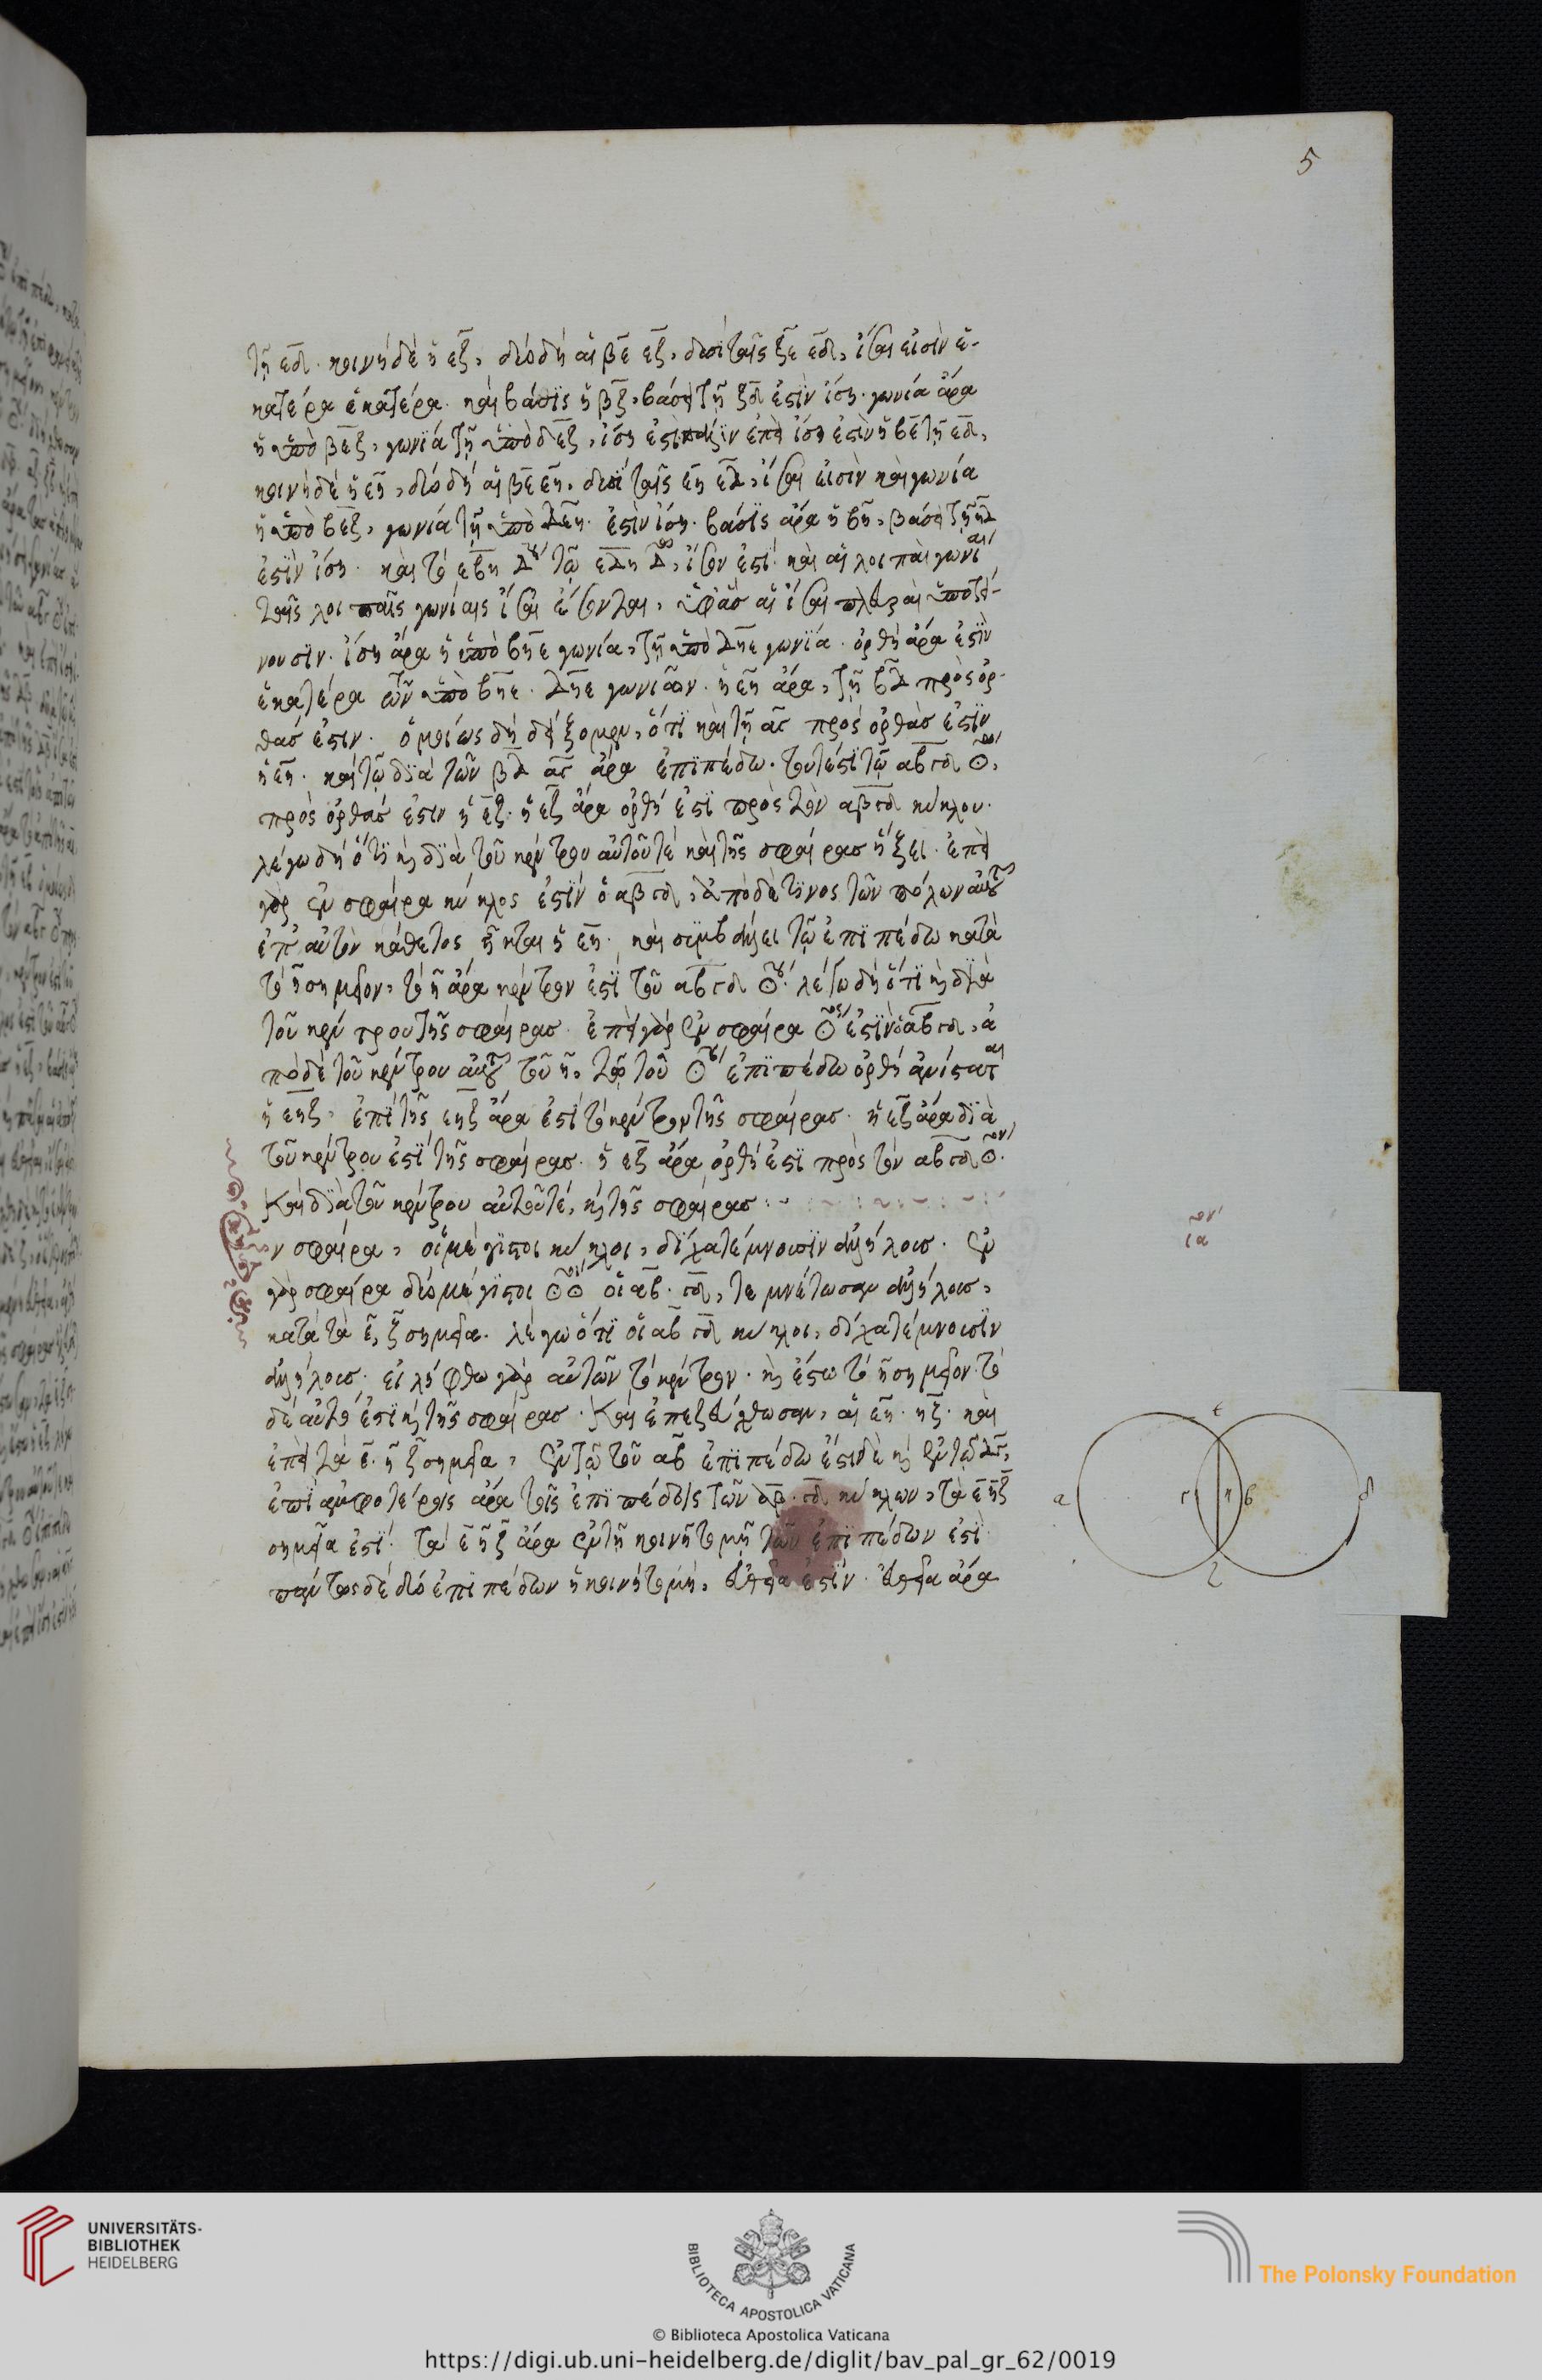 5
τῇ εδ. κοινὴ δὲ ἡ εζ, δύο δὴ αἱ βε εζ, δυσὶ ταῖς ζε εδ, ἴσαι εἰσὶν ἑ-
κατέρα ἑκατέρα. καὶ βάσις ἡ βζ, βάσει τῇ ζδ ἐστὶν ἴση. γωνία ἄρα
ἡ ὑπὸ βεζ, γωνία τῇ ὑπὸ δεζ, ἴση ἐστὶ πάλιν ἐπεὶ ἴση ἐστὶν ἡ βε τῇ εδ,
κοινὴ δὲ ἡ εη, δύο δὴ αἱ βε εη, δυσὶ ταῖς εη εδ, ἴσαι εἰσὶν καὶ γωνία
ἡ ὑπὸ βεζ, γωνία τῇ ὑπὸ δεη. ἐστὶν ἴση. βάσις ἄρα ἡ βη, βάσει τῇ ηδ
ἐστὶν ἴση. καὶ τὸ εβη Δον τῷ εδη Δω, ἴσον ἐστί. καὶ αἱ λοιπαὶ γωνίαι
ταῖς λοιπαῖς γωνίαις ἴσαι ἔσονται, ὑφ' ἃς αἱ ἴσαι πλευραὶ ὑποτεί-
νουσιν. ἴση ἄρα ἡ ὑπὸ βηε γωνία, τῇ ὑπὸ δηε γωνία. ὀρθὴ ἄρα ἐστὶν
ἑκατέρα τῶν ὑπὸ βηε. δηε γωνιῶν. ἡ εη ἄρα, τῇ βδ πρὸς ὀρ-
θάς ἐστιν. ὁμοίως δὴ δείξομεν, ὅτι καὶ τῇ αγ πρὸς ὀρθάς ἐστιν
ἡ εη. καὶ τῷ διὰ τῶν βδ αγ ἄρα ἐπιπέδω. τουτέστι τῷ αβγδ ☉ω,
πρὸς ὀρθάς ἐστιν ἡ εζ. ἡ εζ ἄρα ὀρθή ἐστι πρὸς τὸν αβγδ κύκλον.
λέγω δὴ ὅτι καὶ διὰ τοῦ κέντρου αὐτοῦ τε καὶ τῆς σφαίρας ἥξει. ἐπεὶ
γὰρ ἐν σφαίρα κύκλος ἐστὶν ὁ αβγδ, ἀπὸ δὲ τινος τῶν πόλων αὐτοῦ
ἐπ' αὐτὸν κάθετος ἦκται ἡ εη. καὶ συμβάλλει τῷ ἐπιπέδω κατὰ
τὸ η σημεῖον, τὸ η ἄρα κέντρον ἐστὶ τοῦ αβγδ ☉ου. λέγω δὴ ὅτι καὶ διὰ
τοῦ κέντρου τῆς σφαίρας. ἐπεὶ γὰρ ἐν σφαίρα ☉ος ἐστὶν ὁ αβγδ, ἀ-
πὸ δὲ τοῦ κέντρου αὐτοῦ τοῦ η, τῷ τοῦ ☉ου ἐπιπέδω ὀρθὴ ἀνέσταται
ἡ εηζ. ἐπὶ τῆς εηζ ἄρα ἐστὶ τὸ κέντρον τῆς σφαίρας. ἡ εζ ἄρα διὰ
τοῦ κέντρου ἐστὶ τῆς σφαίρας. ἡ εζ ἄρα ὀρθή ἐστι πρὸς τὸν αβγδ ☉ον.
Καὶ διὰ τοῦ κέντρου αὐτοῦ τε, καὶ τῆς σφαίρας :
Εν σφαίρα, οἱ μέγιστοι κύκλοι, δίχα τέμνουσιν ἀλλήλους. ἐν
γὰρ σφαίρα δύο μέγιστοι ☉☉οι οἱ αβ. γδ, τεμνέτωσαν ἀλλήλους,
κατὰ τὰ ε, ζ σημεῖα. λέγω ὅτι οἱ αβ γδ κύκλοι, δίχα τέμνουσιν
ἀλλήλους. εἰλήφθω γὰρ αὐτῶν τὸ κέντρον. καὶ ἔστω τὸ η σημεῖον. τὸ
δὲ αὐτὸ ἐστὶ καὶ τῆς σφαίρας. Καὶ ἐπεζεύχθωσαν, αἱ εη. ηζ. καὶ
ἐπεὶ τὰ ε. η ζ σημεῖα, ἐν τῷ τοῦ αβ ἐπιπέδω ἔστι δὲ καὶ ἐν τῷ δγ,
ἐπὶ ἀμφοτέροις ἄρα τοῖς ἐπιπέδοις τῶν αβ. γδ κύκλων, τὰ εηζ
σημεῖα ἐστί. τὰ ε η ζ ἄρα ἐν τῇ κοινῇ τομῇ τῶν ἐπιπέδων ἐστὶ
παντὸς δὲ δύο ἐπιπέδων ἡ κοινὴ τομή, εὐθεῖα ἐστίν. εὐθεῖα ἄρα
ον
ια
ε
α γ η β δ
ζ
UNIVERSITÄTS-
BIBLIOTHEK
HEIDELBERG
BIBLIOTECA APOSTOLICA VATICANA
The Polonsky Foundation
© Biblioteca Apostolica Vaticana
https://digi.ub.uni-heidelberg.de/diglit/bav_pal_gr_62/0019